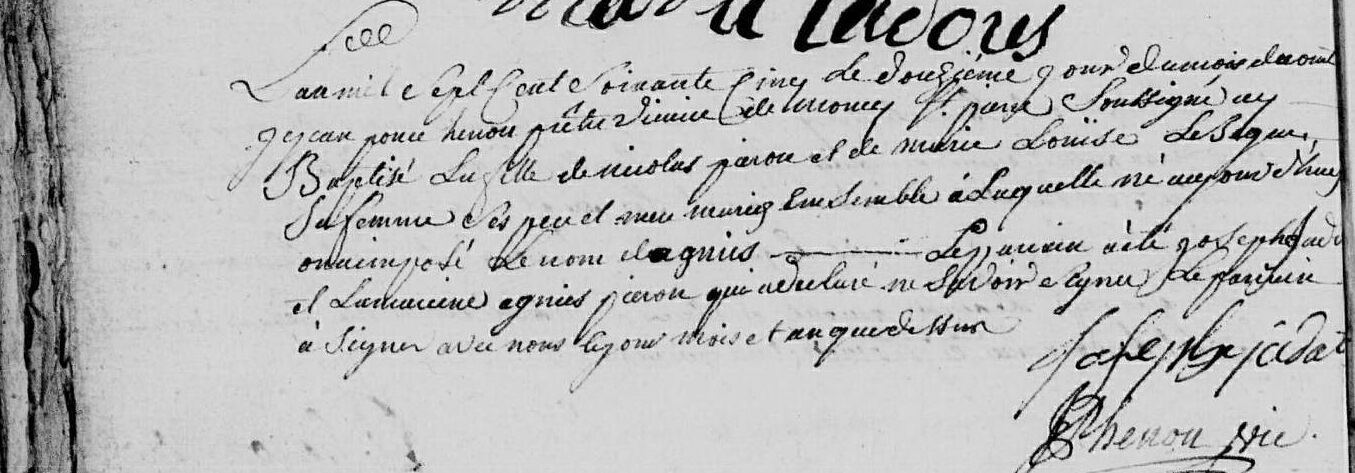 Lan mil Sept Cent Soixante Cinq Le douzième jour du mois daout
je jean ponce henon prêtre vicaire de moncy St. pierre Soussigné ay
Baptisé La fille de nicolas pieron et de marie Louïse Le Seque
Sa femme Ses pere et mere mariez Ensemble à Laquelle né aujourd'huy
on a imposé Le nom dagnies Le parain a été joseph jada
et La maraine agnies pieron qui a declaré ne Savoir Signer Le parain
à Signer avec nous Le jour mois et an que dessus
joseph jadat
JP henon vic.